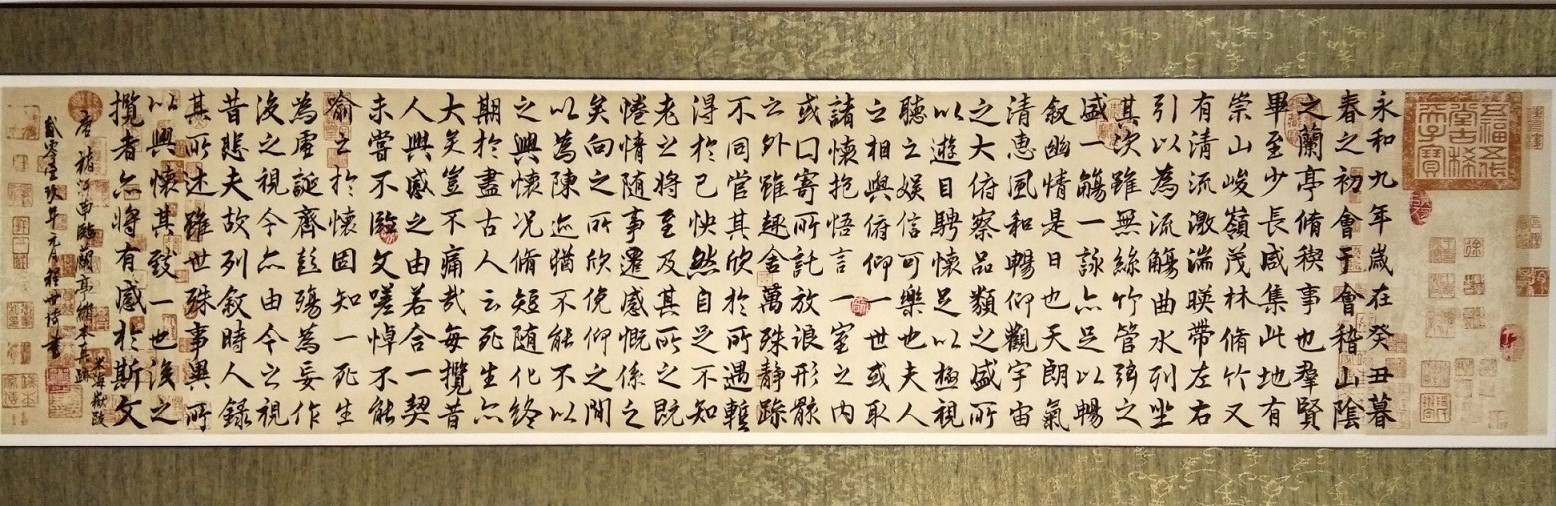 五福五代
堂古稀
天子寶
永和九年歲在癸丑暮
春之初會于會稽山陰
之蘭亭脩稧事也羣賢
畢至少長咸集此地有
崇山峻嶺茂林脩竹又
有清流激湍暎帶左右
引以為流觴曲水列坐
其次雖無絲竹管弦之
盛一觴一詠亦足以暢
叙幽情是日也天朗氣
清惠風和暢仰觀宇宙
之大俯察品類之盛所
以遊目騁懷足以極視
聽之娛信可樂也夫人
之相與俯仰一世或取
諸懷抱悟言一室之內
或因寄所託放浪形骸
之外雖趣舍萬殊靜躁
不同當其欣於所遇蹔
得於己怏然自足不知
老之將至及其所之既
惓情隨事遷感慨係之
矣向之所欣俛仰之間
以為陳迹猶不能不以
之興懷況脩短隨化終
期於盡古人云死生亦
大矣豈不痛哉每攬昔
人興感之由若合一契
未嘗不臨文嗟悼不能
喻之於懷固知一死生
為虛誕齊彭殤為妄作
後之視今亦由今之視
昔悲夫故列敘時人錄
其所述雖世殊事異所
以興懷其致一也後之
攬者亦將有感於斯文
唐褚河南臨蘭亭絹本真跡
米海嶽跋
貳零壹玖年元月程世詩書